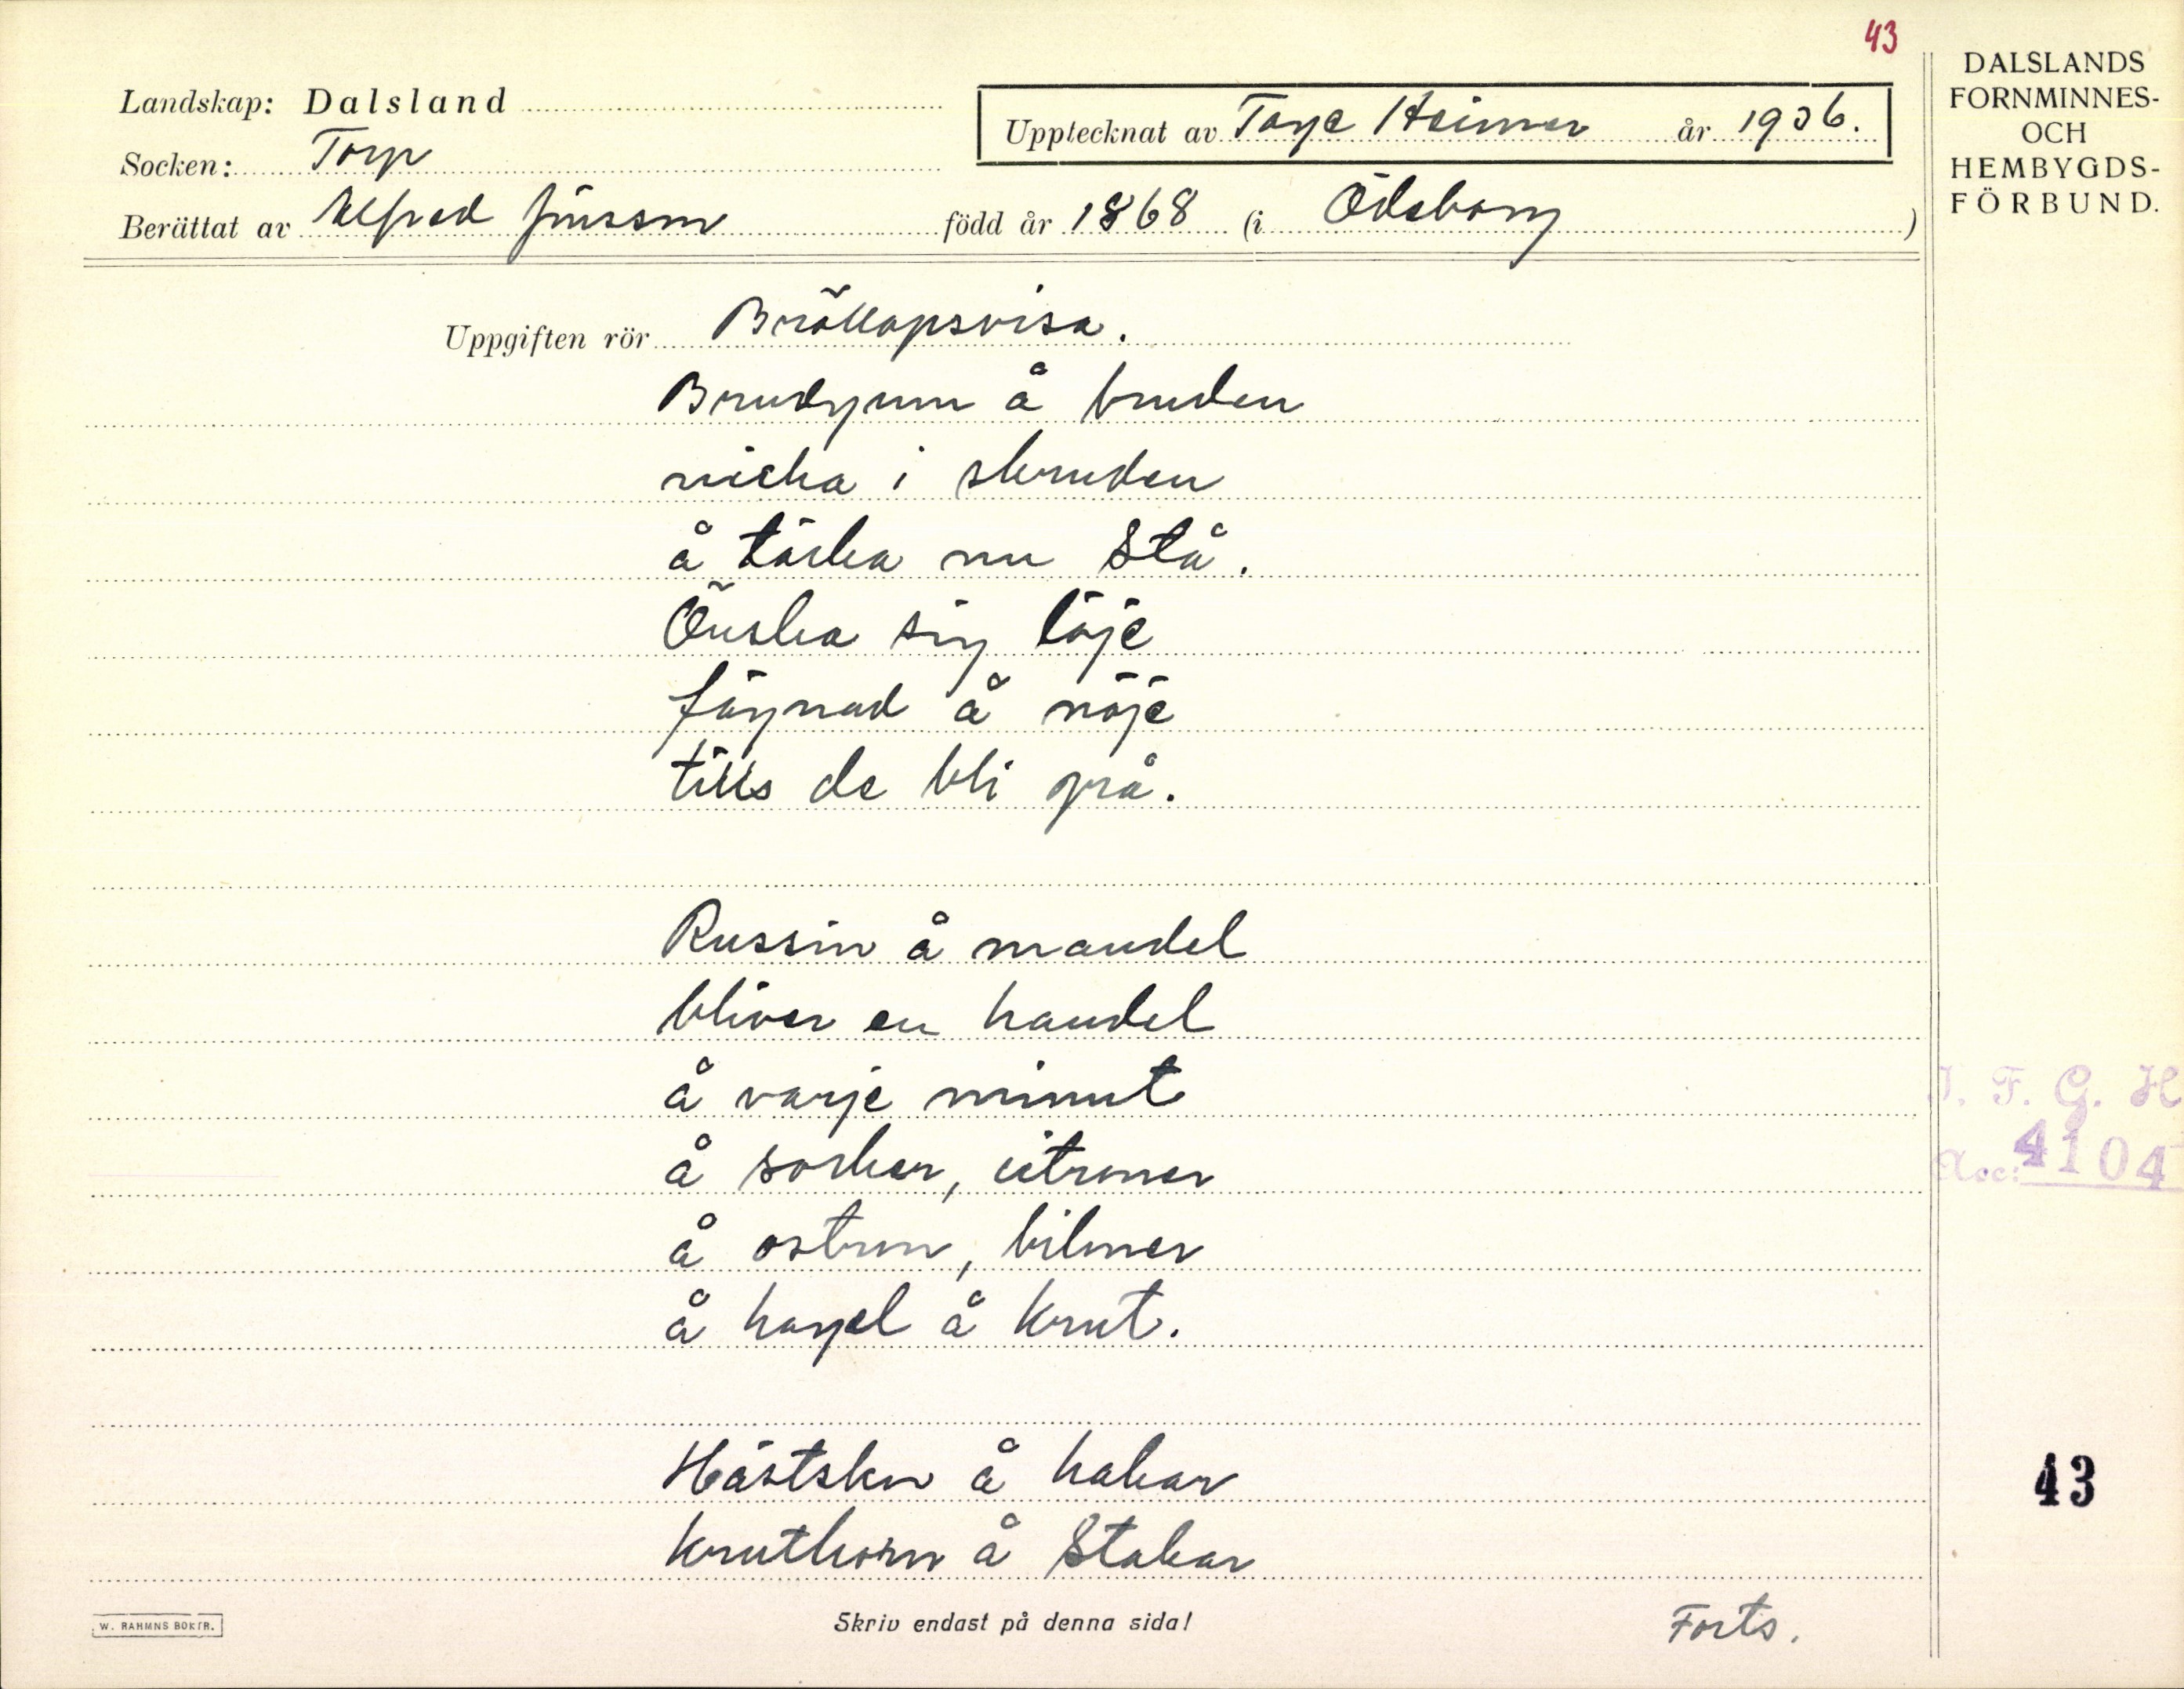 43
DALSLANDS
FORNMINNES-
OCH
HEMBYGDS-
FÖRBUND.
Landskap: Dalsland
Upptecknat av Tage Heimer år 1936.
Socken: Torp
Berättat av Alfred Jonsson född år 1868 (i Ödeborg)
Uppgiften rör Bröllopsvisa.
Brudgum å bruden
nicka i skruden
å tärka nu stå.
Önska sig löje
fägnad å nöje
tills de bli grå.
Russin å mandel
bliver en handel
å varje minut
å socker, citroner
å ostron, biloner
å hagel å krut.
Hästskor å hakar
kruthorn å stakar
Forts.
I. F. G. H
Acc: 4104
43
W. RAHMNS BOKTR.
Skriv endast på denna sida!